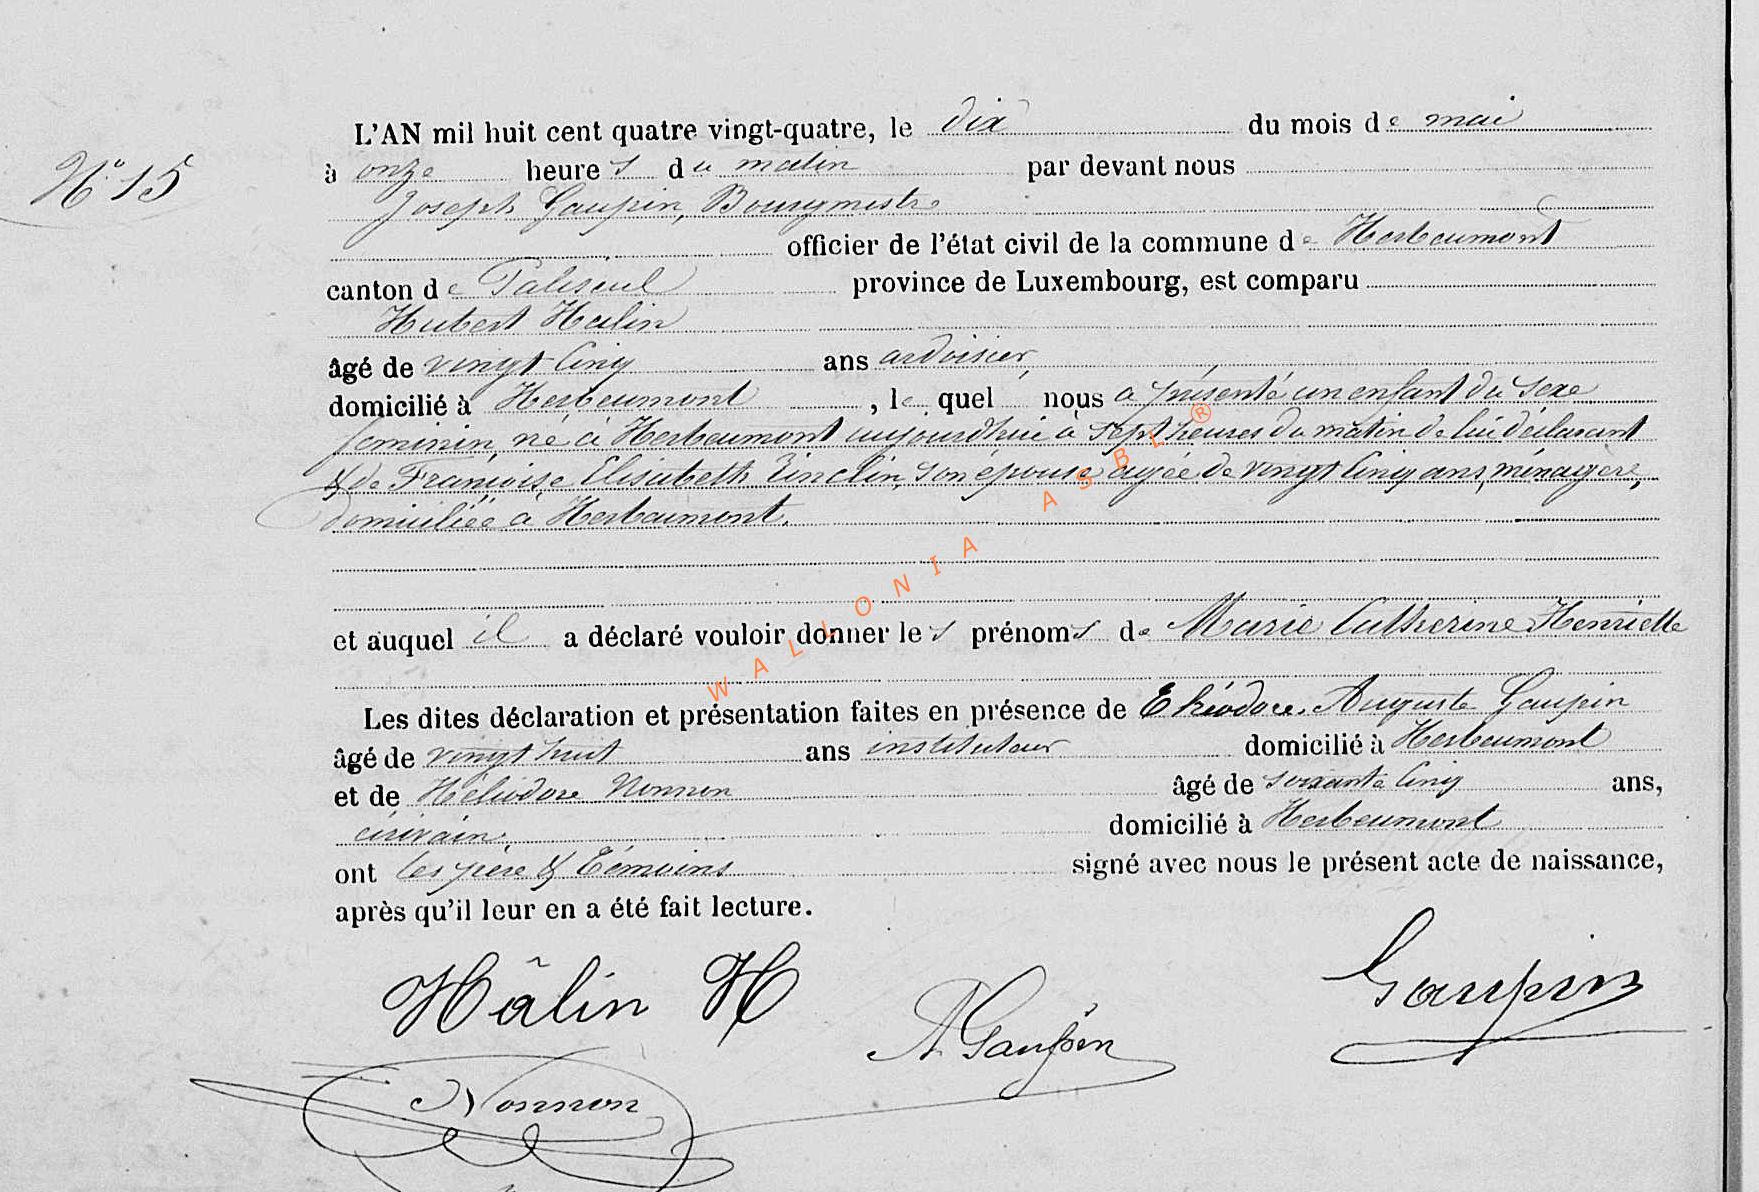 L'AN mil huit cent quatre vingt-quatre, le dix du mois de mai
N° 15
à onze heures du matin par devant nous
Joseph Gaupin, Bourgmestre
officier de l'état civil de la commune de Herbeumont
canton de Paliseul province de Luxembourg, est comparu
Hubert Halin
âgé de vingt cinq ans ardoisier,
domicilié à Herbeumont, lequel nous a présenté un enfant du sexe
feminin, né à Herbeumont aujourdhui à sept heures du matin de lui déclarant
& de Françoise Elisabeth Tinclin, son épouse agée de vingt cinq ans, ménagère,
domiciliée à Herbeumont.
et auquel il a déclaré vouloir donner les prénoms de Marie Catherine Henriette
Les dites déclaration et présentation faites en présence de Auguste Gaupin
âgé de vingt huit ans instituteur domicilié à Herbeumont
et de Héliodore Nonnon âgé de soixante cinq ans,
écrivain, domicilié à Herbeumont
ont les père & témoins signé avec nous le présent acte de naissance,
après qu'il leur en a été fait lecture.
Hâlin H
A Gaupin
Gaupin
Nonnon
WALLONIA ASBL ®